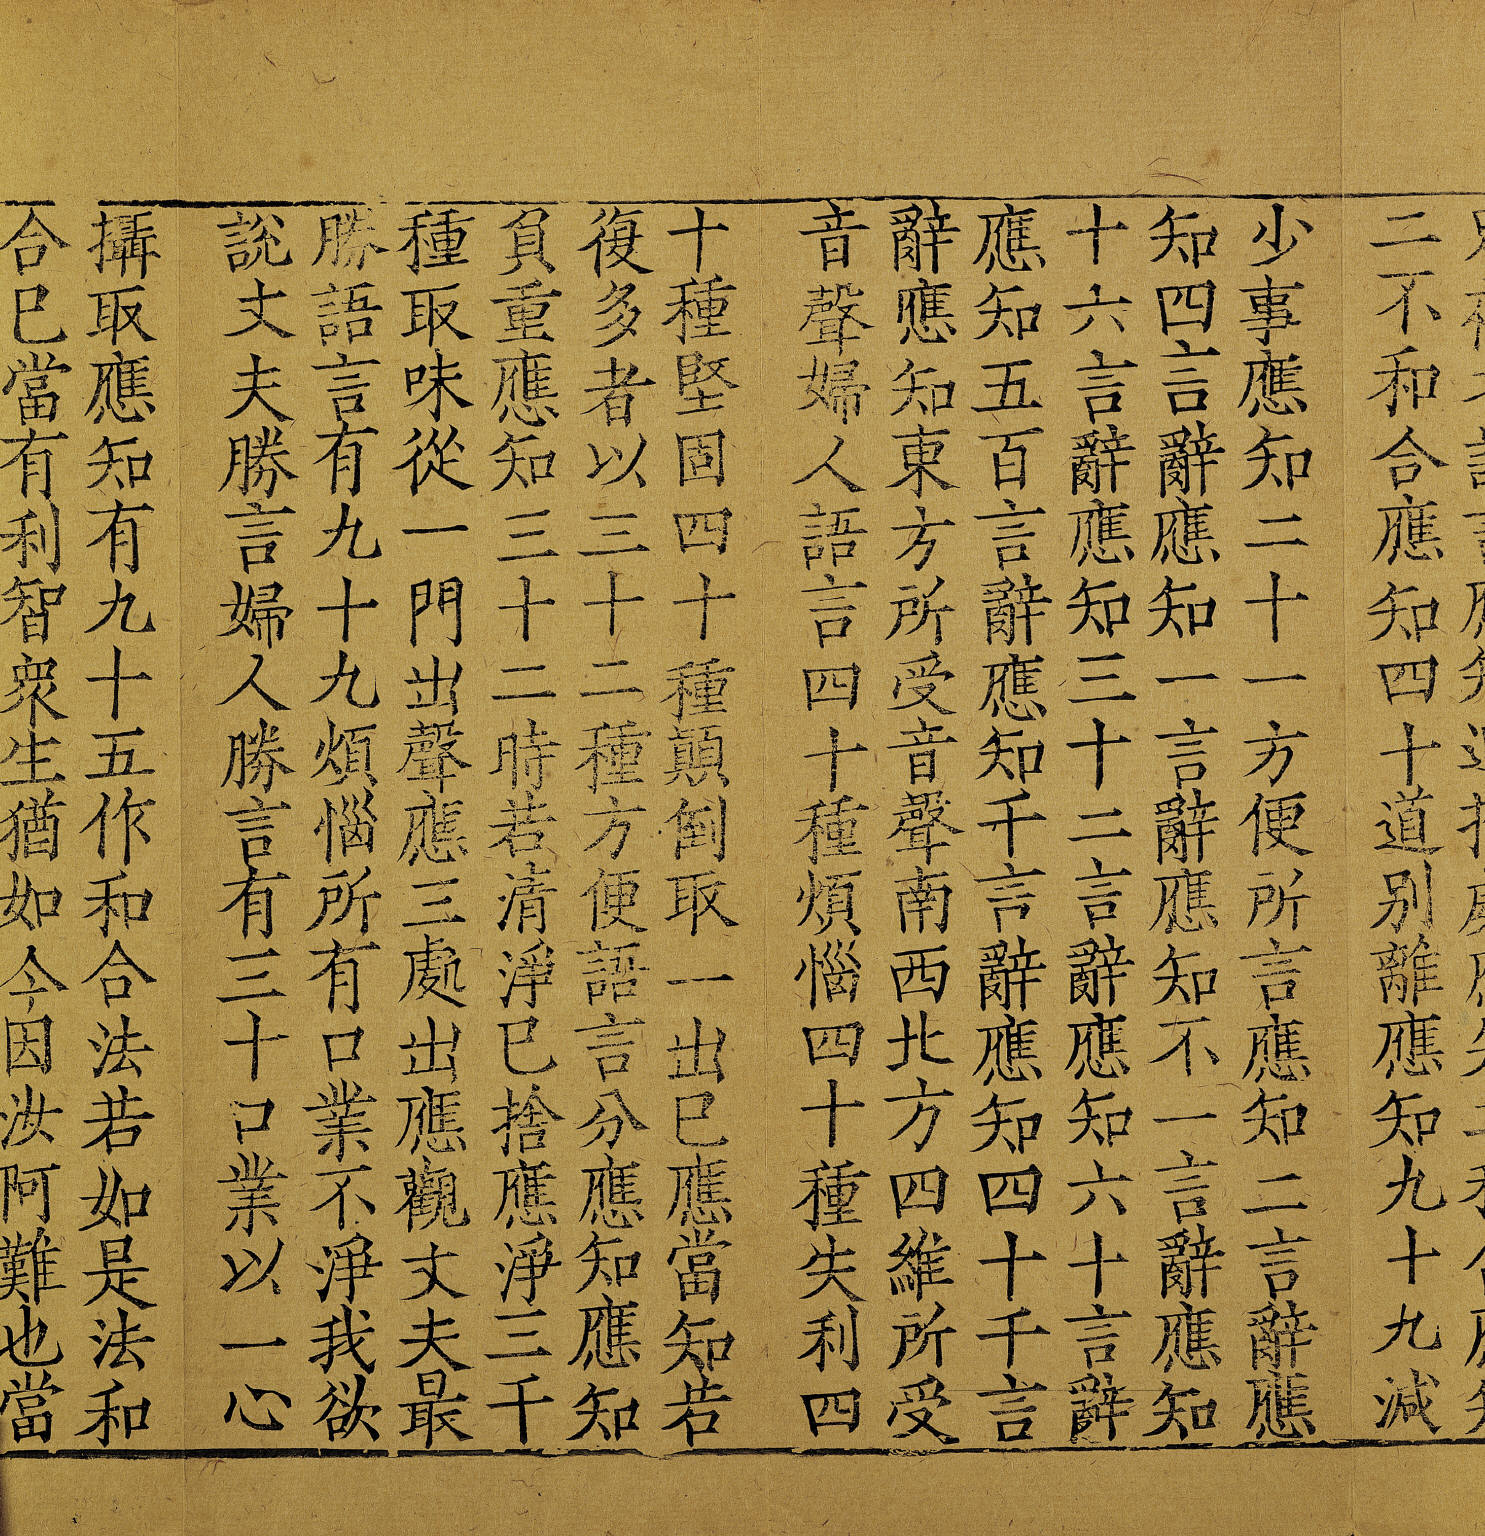 二不和合應知四十道别離應知九十九減
少事應知二十一方便所言應知二言辭應
知四言辭應知一言辭應知不一言辭應知
十六言辭應知三十二言辭應知六十言辭
應知五百言辭應知千言辭應知四十千言
辭應知東方所受音聲南西北方四維所受
音聲婦人語言四十種煩惱四十種失利四
十種堅固四十種顛倒取一出已應當知若
復多者以三十二種方便語言分應知應知
負重應知三十二時若清淨已捨應淨三千
種取味從一門出聲應三處出應觀丈夫最
勝語言有九十九煩惱所有口業不淨我欲
說丈夫勝言婦人勝言有三十口業以一心
攝取應知有九十五作和合法若如是法和
合已當有利智衆生猶如今因汝阿難也當